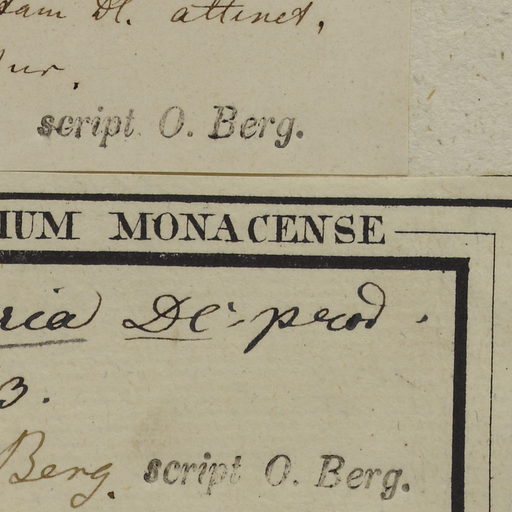 Dl. attinet,
script O. Berg.
IUM MONACENSE
ria DC. prod.
3.
Berg. script O. Berg.